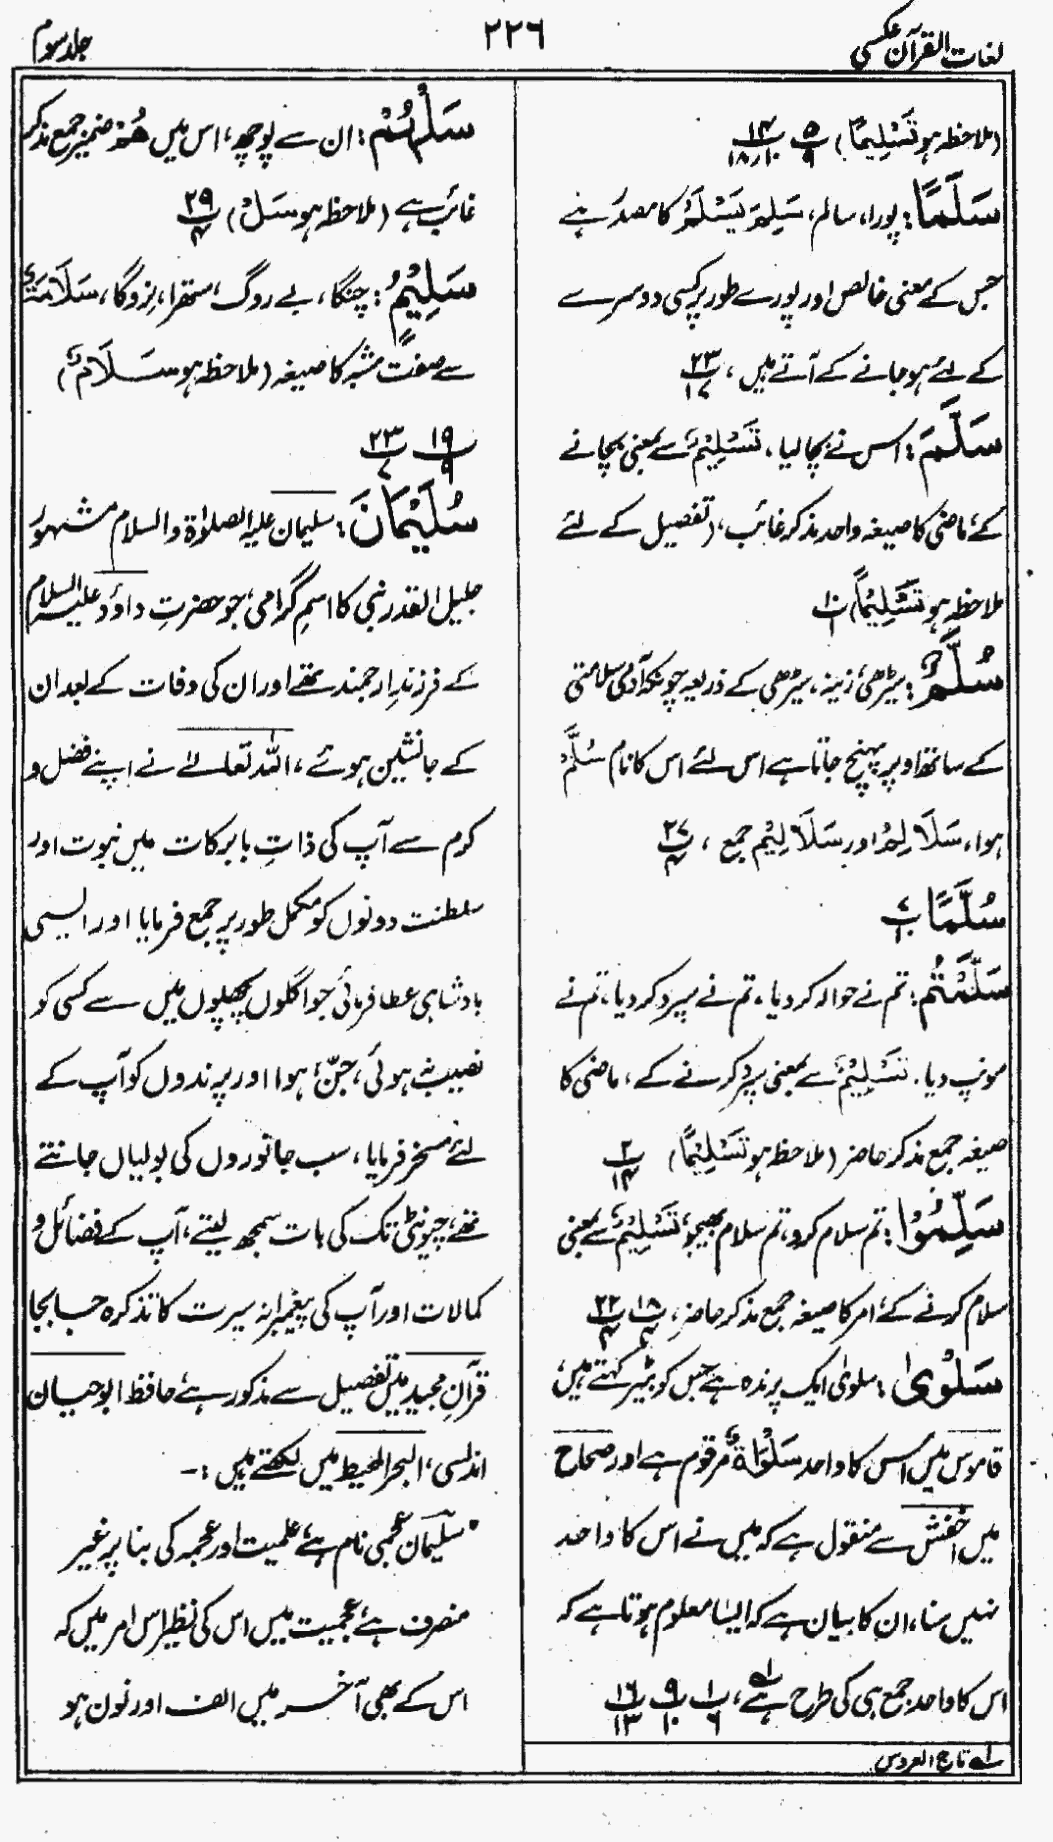 لغات القرآن عکسی
۲۲۶
جلد سوم
(ملاحظہ ہو تَسْلِیْمًا) پ۵/۹ پ۱۴/۱۰،۱۸
سَلَمًا: پورا، سالم، سَلِمَ یَسْلَمُ کا مصدر ہے
جس کے معنی خالص اور پورے طور پر کسی دوسرے
کے لئے ہو جانے کے آتے ہیں، پ۲۳/۱۷
سَلَّمَ: اس نے بچا لیا، تَسْلِیْمٌ سے بمعنی بچانے
کے، ماضی کا صیغہ واحد مذکر غائب، (تفصیل کے لئے
ملاحظہ ہو تَسْلِیْمًا) پ۱۰/۱
سُلَّمٌ: سیڑھی، زینہ، سیڑھی کے ذریعہ چونکہ آدمی سلامتی
کے ساتھ اوپر پہنچ جاتا ہے اس لئے اس کا نام سُلَّمٌ
ہوا، سَلَالِمُ اور سَلَالِیْمُ جمع، پ۲۷/۴
سُلَّمًا پ۷/۱۰
سَلَّمْتُمْ: تم نے حوالہ کر دیا، تم نے سپرد کر دیا، تم نے
سونپ دیا. تَسْلِیْمٌ سے بمعنی سپرد کرنے کے، ماضی کا
صیغہ جمع مذکر حاضر (ملاحظہ ہو تَسْلِیْمًا) پ۲/۱۴
سَلِّمُوْا: تم سلام کرو، تم سلام بھیجو، تَسْلِیْمٌ سے بمعنی
سلام کرنے کے، امر کا صیغہ جمع مذکر حاضر، پ۱۸/۱۴ پ۲۲/۴
سَلْوٰی: سلویٰ ایک پرندہ ہے جس کو بٹیر کہتے ہیں،
قاموس میں اس کا واحد سَلْوَاۃٌ مرقوم ہے اور صحاح
میں اخفش سے منقول ہے کہ میں نے اس کا واحد
نہیں سنا، ان کا بیان ہے کہ ایسا معلوم ہوتا ہے کہ
اس کا واحد جمع ہی کی طرح ہے۱ہ، پ۱/۶ پ۹/۱۰ پ۱۶/۱۳
۱ہ تاج العروس
سَلْہُمْ: ان سے پوچھ، اس میں ھُمْ ضمیر جمع مذکر
غائب ہے (ملاحظہ ہو سَلْ) پ۲۹/۴
سَلِیْمٌ: چنگا، بے روگ، ستھرا، نروگا، سَلَامَۃٌ
سے صفت مشبہ کا صیغہ (ملاحظہ ہو سَلَامٌ)
پ۱۹/۹ پ۲۳/۷
سُلَیْمَانَ: سلیمان علیہ الصلوٰۃ والسلام مشہور
جلیل القدر نبی کا اسمِ گرامی، جو حضرتِ داؤد علیہ السلام
کے فرزندِ ارجمند تھے اور ان کی وفات کے بعد ان
کے جانشین ہوئے، اللہ تعالےٰ نے اپنے فضل و
کرم سے آپ کی ذاتِ بابرکات میں نبوت اور
سلطنت دونوں کو مکمل طور پر جمع فرمایا اور ایسی
بادشاہی عطا فرمائی جو اگلوں پچھلوں میں سے کسی کو
نصیب نہ ہوئی، جنّ، ہوا اور پرندوں کو آپ کے
لئے مسخر فرمایا، سب جانوروں کی بولیاں جانتے
تھے، چیونٹی تک کی بات سمجھ لیتے، آپ کے فضائل و
کمالات اور آپ کی پیغمبرانہ سیرت کا تذکرہ جا بجا
قرآن مجید میں تفصیل سے مذکور ہے، حافظ ابو حیان
اندلسی، البحر المحیط میں لکھتے ہیں :-
"سلیمان عجمی نام ہے، علمیت اور عجمہ کی بنا پر غیر
منصرف ہے، عجمیت میں اس کی نظیر اس امر میں کہ
اس کے بھی آخر میں الف اور نون ہو